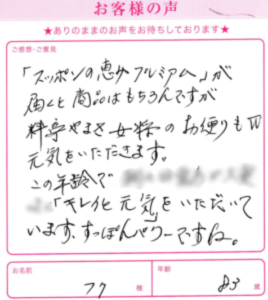 お客様の声
★ありのままのお声をお待ちしております★
ご感想・ご意見
「スッポンの恵みプレミアム」が
届くと商品はもちろんですが
料亭やまさ女将のお便りも
元気をいただきます。
この年齢で
「キレイと元気」をいただいて
います、すっぽんパワーですね。
お名前
フク 様
年齢
83 歳